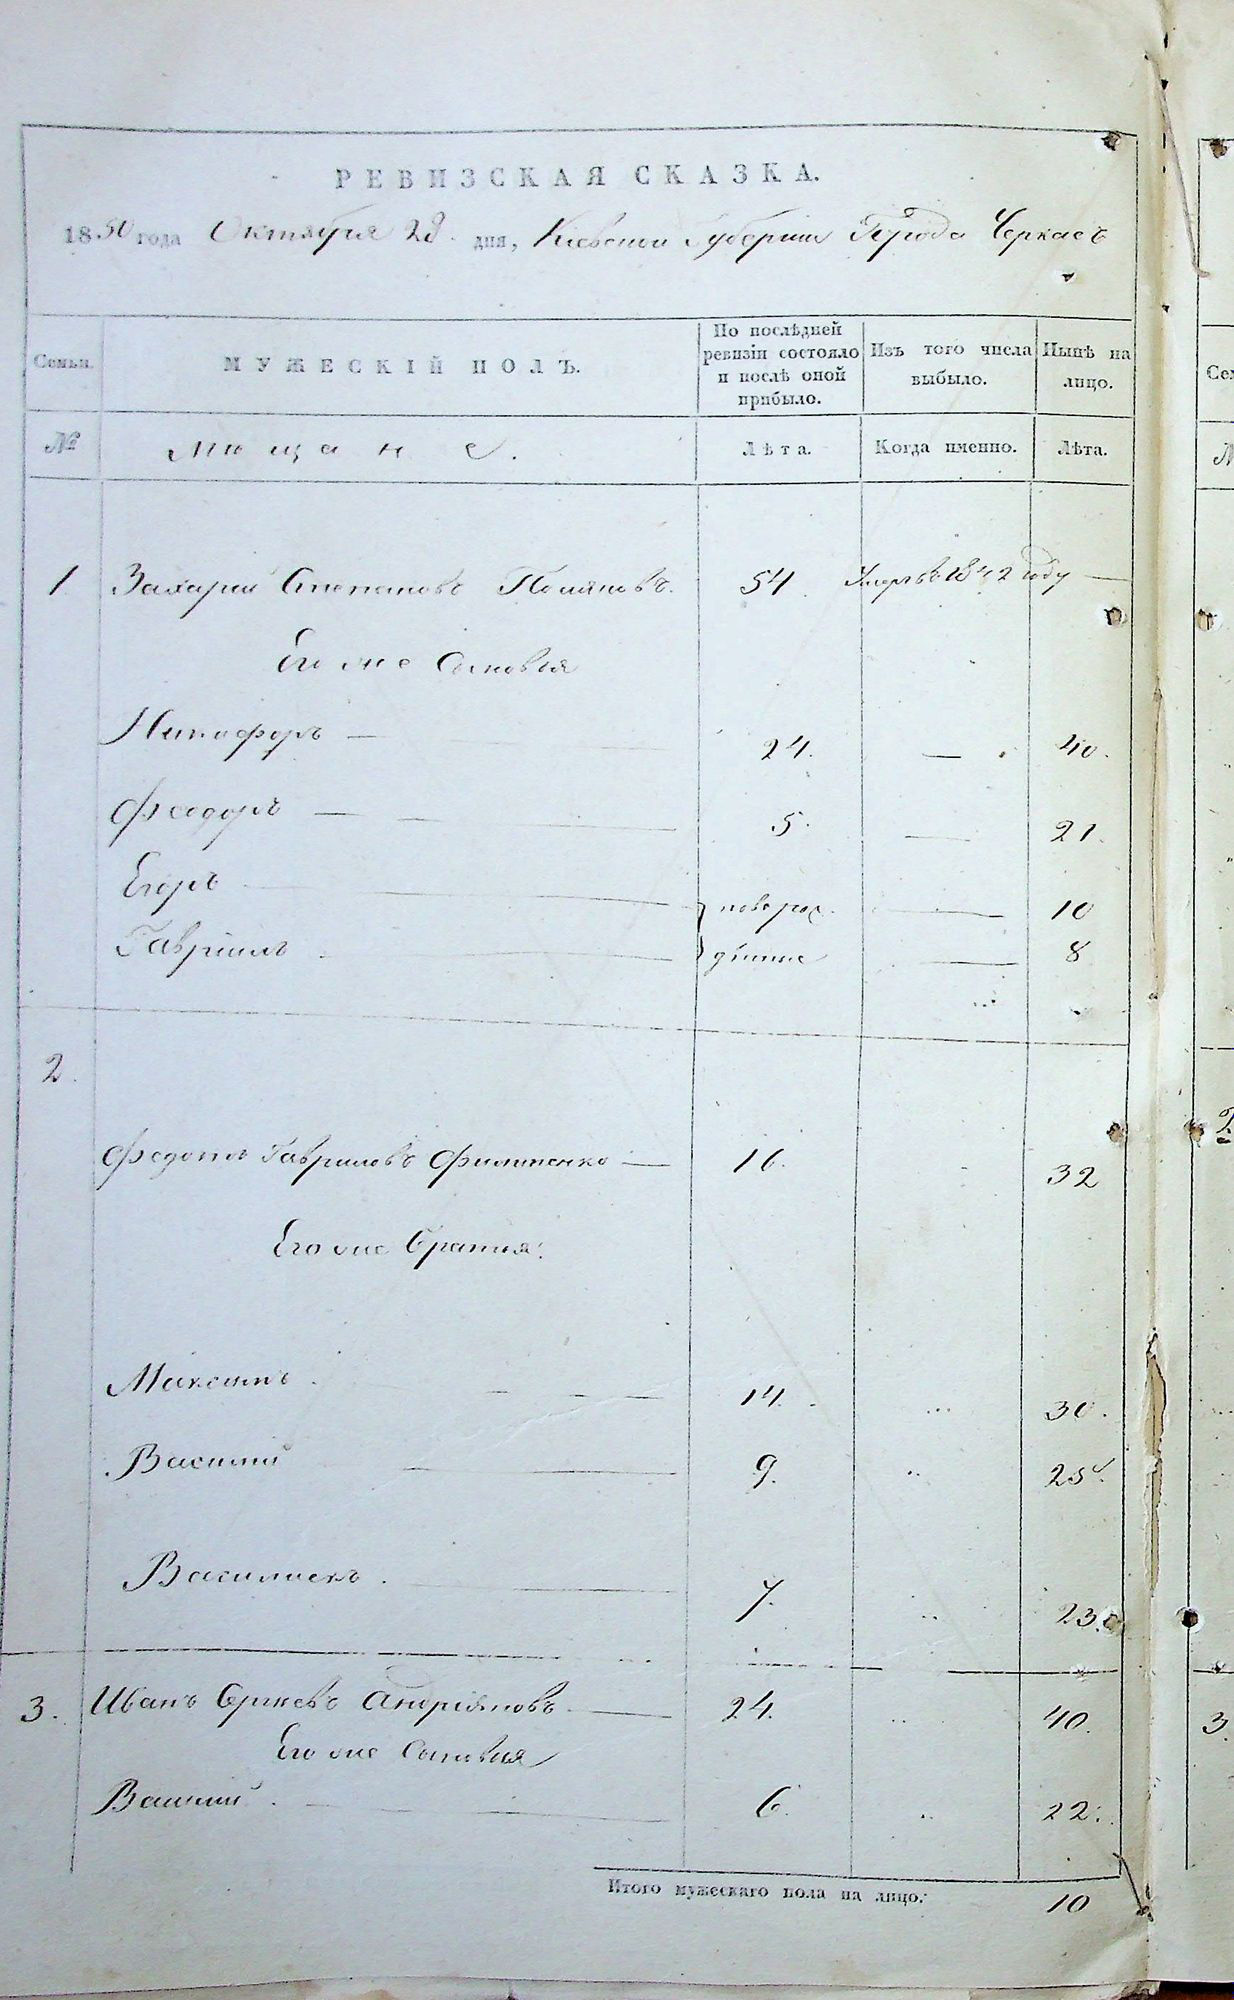 РЕВИЗСКАЯ СКАЗКА.
1850 года Октября 28 дня, Кіевской Губерніи Города Черкасъ
Семьи.
МУЖЕСКІЙ ПОЛЪ.
По послѣдней ревизіи состояло и послѣ оной прибыло.
Изъ того числа выбыло.
Нынѣ на лицо.
№
Мѣщане.
Лѣта.
Когда именно.
Лѣта.
1 Захарій Степановъ 54. Умеръ въ 1842 году —
Его же Сыновья
Никифоръ — 24. — 40.
Феодоръ — 5. — 21.
Егоръ — новорож — 10
Гавріилъ — дѣнные — 8
2.
Федотъ Гавриловъ Филипенко — 16. 32
Его же Братья:
Максимъ. — 14. 30.
Василій — 9. 25.
Василискъ. — 7. 23.
3. Иванъ Сергѣевъ Андріяновъ. — 24. 40.
Его же Сыновья
Василій. — 6. 22.
Итого мужескаго пола на лицо. 10
2.
3.